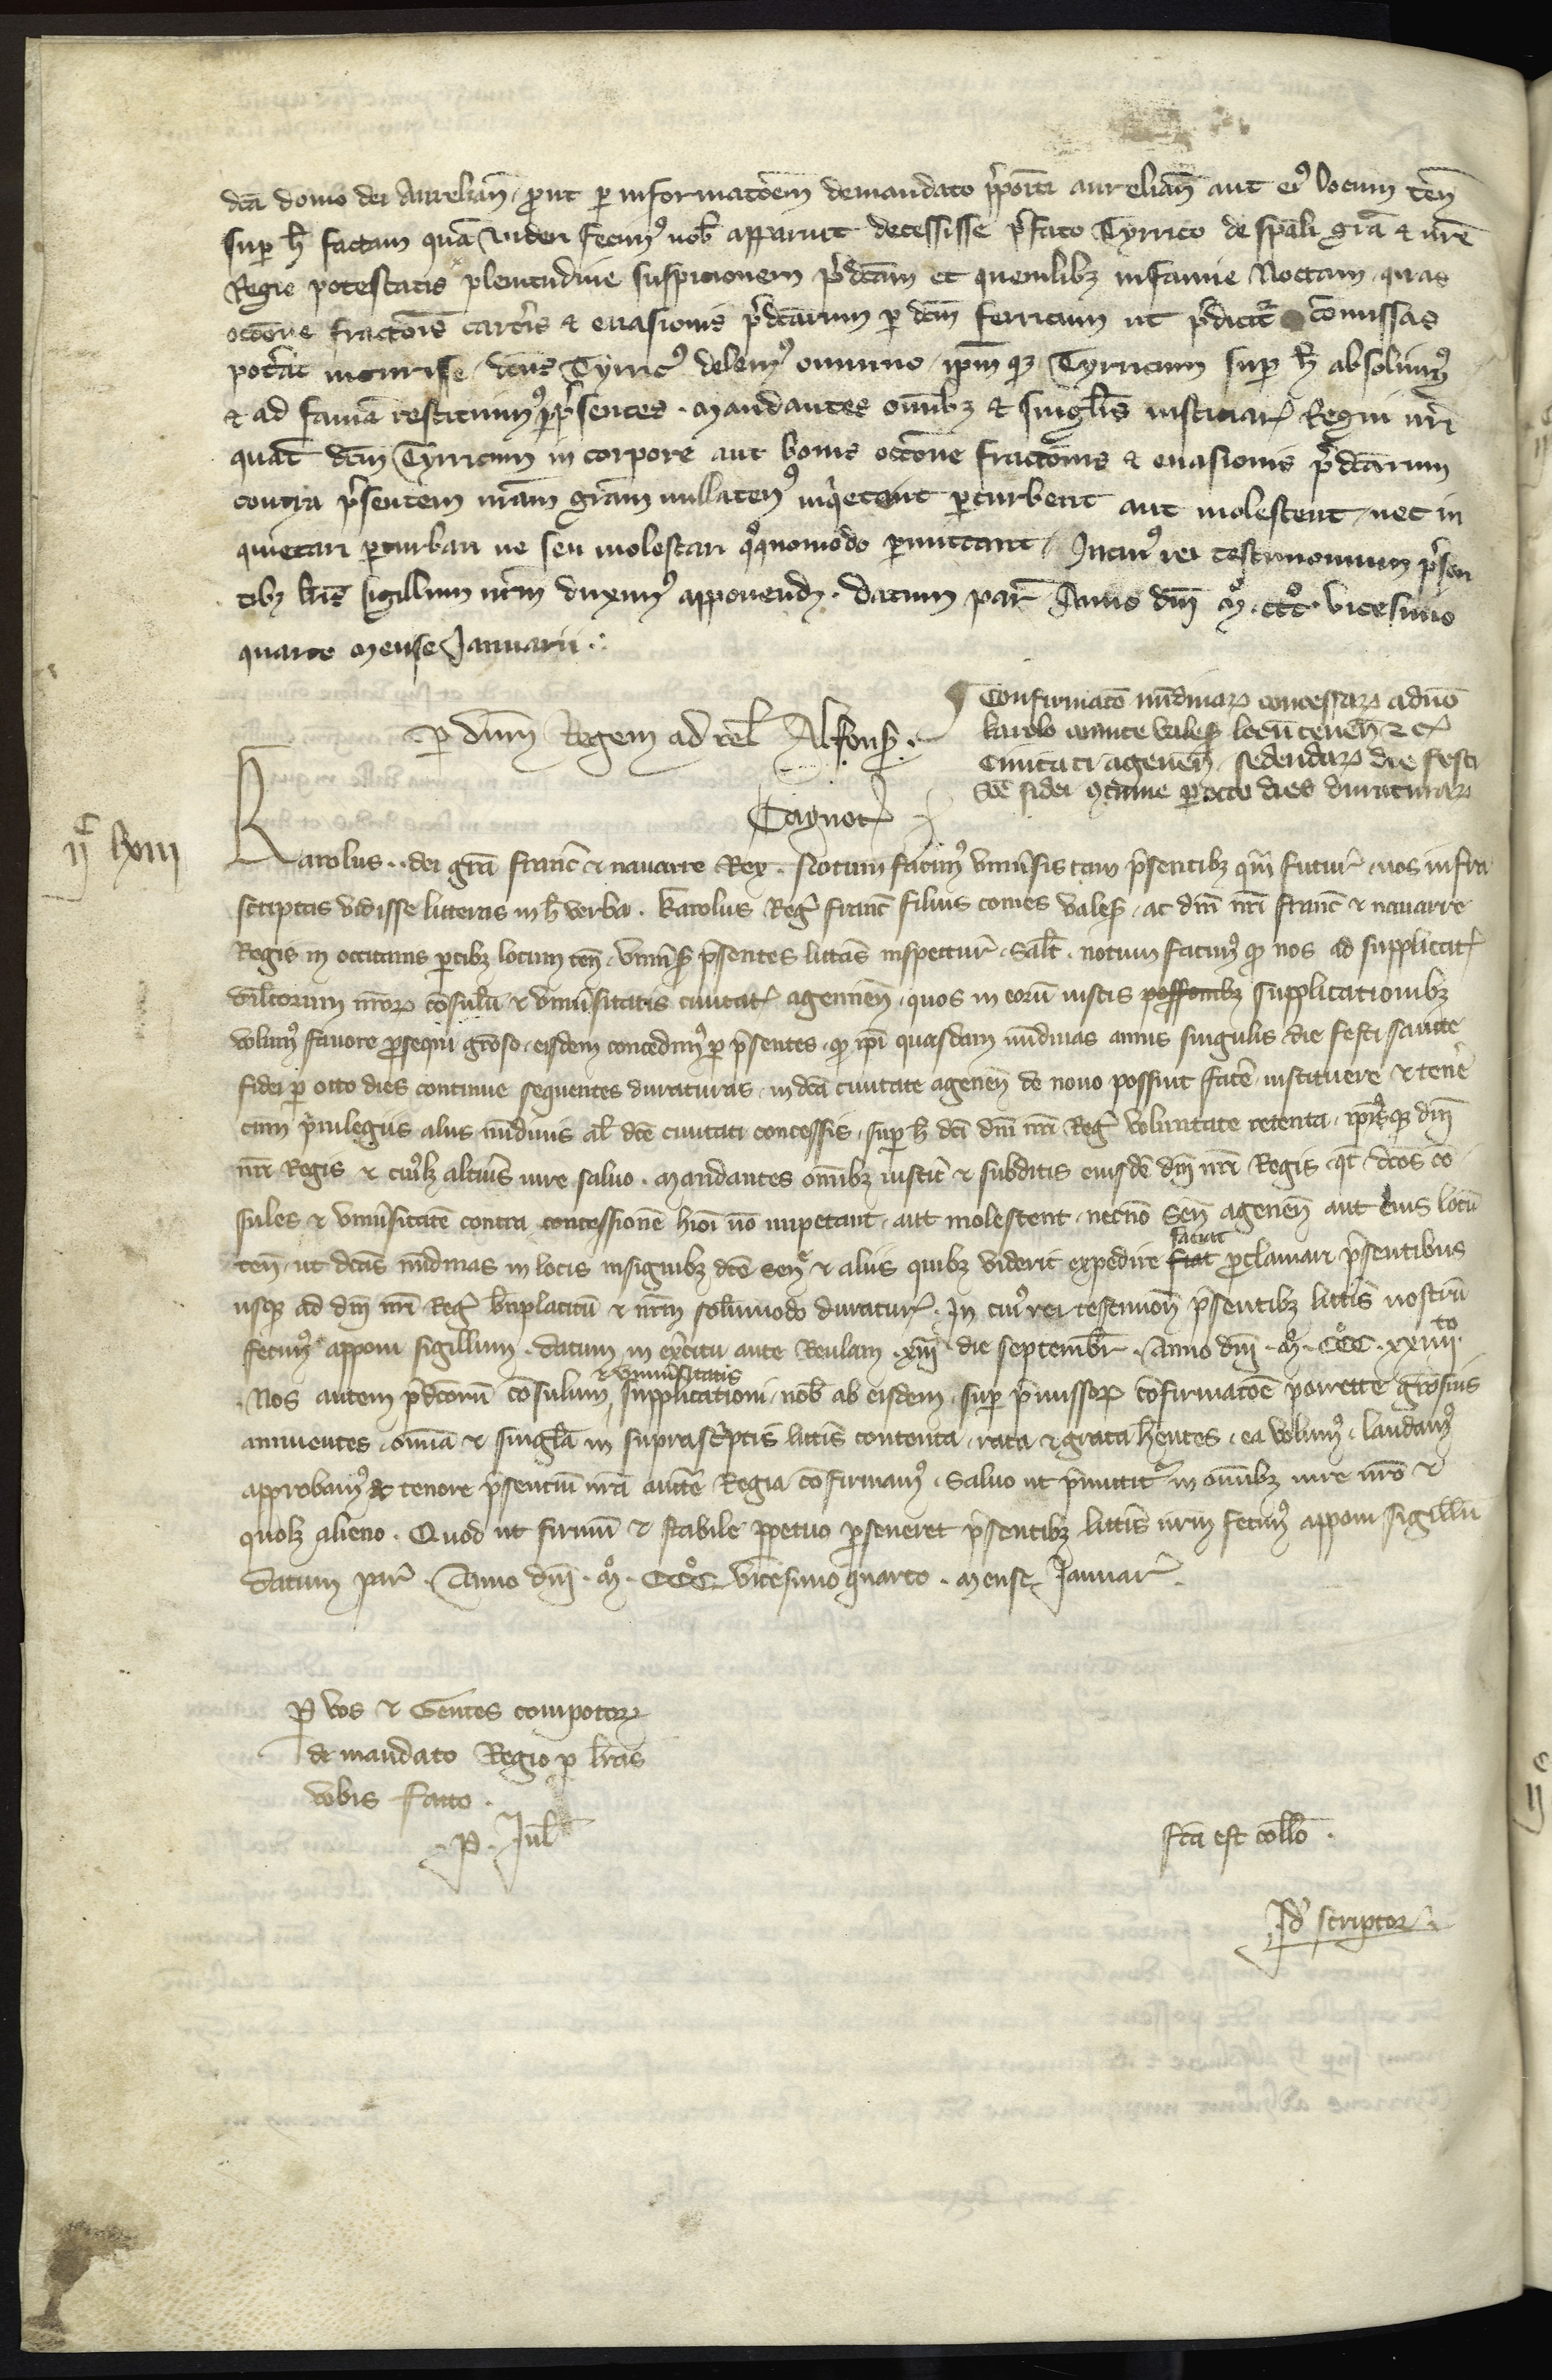 dc̄a domo dei Aurelian̄ . ꝓut ꝑ informatōem demandato p̄poīti aurelian̄ aut eiꝰ locum ten̄
suꝑ h̄ factam quā videri fecimꝰ nob̄ apparuit decessisse p̄fato Tyrrico de spāli grā & nr̄e
Regie potestatis plenitudine suspicionem p̄dc̄am et quemlibꝫ infamie Noctam . quas
occōne fractōis carc̄is & euasionis p̄dc̄arum ꝑ dc̄m ferricum ut p̄dicit̄ comissas
pot̄at incurrisse dc̄us Tyricꝰ delemꝰ omnino . ip̄m qꝫ Tyrricum suꝑ h̄ absoluimꝰ
& ad famā restituimꝰ ꝑ p̄sentes . Mandantes om̄ibꝫ & singl̄is iusticiar̄ Regni nr̄i
quat̄ dc̄m Tyrricum in corpore aut bonis occōne fractōnis & euasionis p̄dc̄arum
contra p̄sentem nr̄am gr̄am nullatenꝰ inq̄etent ꝑturbent aut molestent / nec in
quietari ꝑturbari ue seu molestari qͦquomodo ꝑmittant / In cuiꝰ rei testimonium p̄sen
tibꝫ litt̄is sigillum nr̄m duximꝰ apponendꝫ . Datum par̄ Anno dn̄i Mͦ . CCCͦ . vicesimo
quarto Mense Januarii .
ꝑ dn̄m Regem ad rel̄ Alfonsi .
Tagnot
Confirmatō nūdinaꝝ concessaꝝ a dn̄o
karolo comite vales̄ locū tenēn̄ &c̄
Ciuitati agenen̄ . sedendaꝝ die festi
Sc̄e fidei ꝯtinue ꝑ octo dies duraturaꝝ
ijc lxviii
Karolus . dei grā franc̄ & nauarre Rex . Notum facimꝰ vniūsis tam p̄sentibꝫ qm̄ futur̄ . nos infra
scriptas vidisse litteras in h̄ verba . Karolus Reḡ franc̄ filius comes vales̄ . ac dn̄i nr̄i franc̄ & nauarre
Regis in occitanis ꝑtibꝫ locum ten̄ . vniūs̄ p̄sentes litt̄as inspectur̄ . Salt̄ . notum facimꝰ qꝫ nos ad supplicat̄
dil̄corum nr̄oꝝ cōsulū & vniūsitatis ciuitat̄ agennen̄ . quos in eorū iustis poss̄onibꝫ supplicationibꝫ
volumꝰ fauore ꝓsequi grōso . eisdem concedimꝰ ꝑ p̄sentes . qꝫ ip̄i quasdam nūdinas annis singulis die festi sancte
fidei ꝑ octo dies continue sequentes duraturas . in dc̄a ciuitate agenen̄ de nouo possint fac̄e instituere & tenēe
cum p̄uilegiis aliis nūdinis al̄ dc̄e ciuitati concessis . suꝑ h̄ dc̄i dn̄i nr̄i Reḡ voluntate retenta . ip̄isqꝫ dn̄i
nr̄i Regis & cuiꝰlꝫ altiūs iure saluo . Mandantes om̄ibꝫ iustic̄ & subditis eiusdē dn̄i nr̄i Regis . qt̄ dc̄os cō
sules & vniūsitatē contra concessionē hmōi nō impetant . aut molestent . necnō Sen̄ agenen̄ aut eius locū
ten̄ . ut dc̄as nūdinas in locis insignibꝫ dc̄e sen̄ & aliis quibꝫ viderit expedire fiat faciat ꝓclamari p̄sentibus
usqꝫ ad dn̄i nr̄i Reḡ bn̄placitū & nr̄m solūmodo duratur̄ . In cuiꝰ rei testimon̄ p̄sentibꝫ litt̄is nostrū
fecimꝰ apponi sigillum . Datum in ex̄citu ante Reulam . xiiij die septembr̄ . Anno dn̄i . Mͦ . CCͦC . xxiiijto
Nos autem p̄dc̄orū cōsulum & vniūsitatis supplicationi . nob̄ ab eisdem . suꝑ p̄missoꝝ cōfirmatōe porrecte grōsius
annuentes . om̄ia & singl̄a in suprasc̄ptis litt̄is contenta . rata & grata h̄entes . ea volumꝰ . laudamꝰ
approbamꝰ & tenore p̄sentiū nr̄a auct̄e Regia cōfirmamꝰ . Saluo ut p̄mittit̄ in om̄ibꝫ iure nr̄o &
quolꝫ alieno . Quod ut firmū & stabile ꝑpetuo ꝑseueret p̄sentibꝫ litt̄is nr̄m fecimꝰ apponi sigillū
Datum par̄ . Anno dn̄i . Mͦ . CCCͦ vicesimo quarto . Mense Januar̄ .
ꝑ vos & Gentes compotoꝝ
de mandato Regio ꝑ lr̄as
vobis facto .
. P . Jul̄
fc̄a est coll̄o .
Jd̄ scriptor